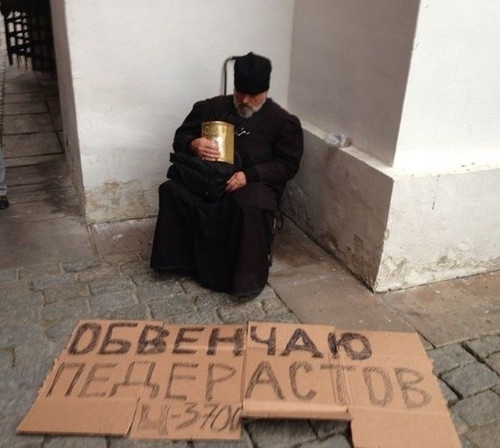 ОБВЕНЧАЮ
ПЕДЕРАСТОВ
Ц-3700